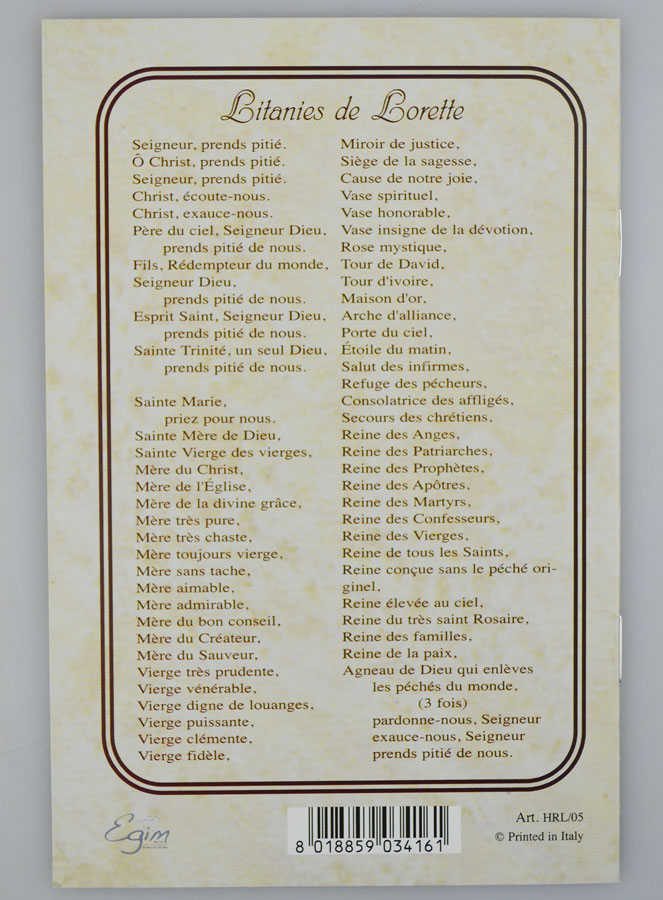 Litanies de Lorette
Seigneur, prends pitié.
Ô Christ, prends pitié.
Seigneur, prends pitié.
Christ, écoute-nous.
Christ, exauce-nous.
Père du ciel, Seigneur Dieu,
prends pitié de nous.
Fils, Rédempteur du monde,
Seigneur Dieu,
prends pitié de nous.
Esprit Saint, Seigneur Dieu,
prends pitié de nous.
Sainte Trinité, un seul Dieu,
prends pitié de nous.
Sainte Marie,
priez pour nous.
Sainte Mère de Dieu,
Sainte Vierge des vierges,
Mère du Christ,
Mère de l'Église,
Mère de la divine grâce,
Mère très pure,
Mère très chaste,
Mère toujours vierge,
Mère sans tache,
Mère aimable,
Mère admirable,
Mère du bon conseil,
Mère du Créateur,
Mère du Sauveur,
Vierge très prudente,
Vierge vénérable,
Vierge digne de louanges,
Vierge puissante,
Vierge clémente,
Vierge fidèle,
Miroir de justice,
Siège de la sagesse,
Cause de notre joie,
Vase spirituel,
Vase honorable,
Vase insigne de la dévotion,
Rose mystique,
Tour de David,
Tour d'ivoire,
Maison d'or,
Arche d'alliance,
Porte du ciel,
Étoile du matin,
Salut des infirmes,
Refuge des pécheurs,
Consolatrice des affligés,
Secours des chrétiens,
Reine des Anges,
Reine des Patriarches,
Reine des Prophètes,
Reine des Apôtres,
Reine des Martyrs,
Reine des Confesseurs,
Reine des Vierges,
Reine de tous les Saints,
Reine conçue sans le péché ori-
ginel,
Reine élevée au ciel,
Reine du très saint Rosaire,
Reine des familles,
Reine de la paix,
Agneau de Dieu qui enlèves
les péchés du monde,
(3 fois)
pardonne-nous, Seigneur
exauce-nous, Seigneur
prends pitié de nous.
Egim
8 018859 034161
Art. HRL/05
© Printed in Italy